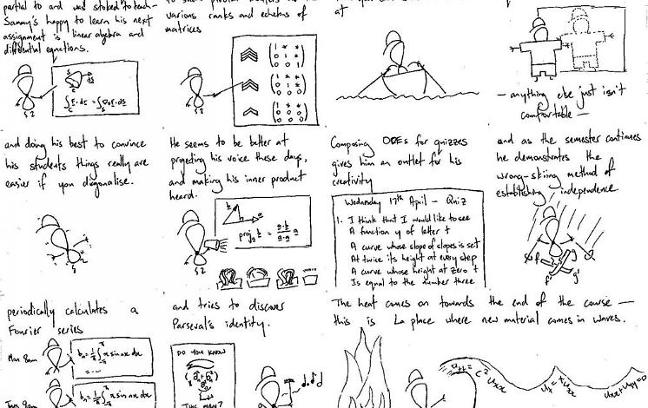 partial to and was stoked to teach -
Sammy's happy to learn his next
assignment is linear algebra and
differential equations.
various ranks and echelons of
matrices
at
— anything else just isn't
comfortable —
and doing his best to convince
his students things really are
easier if you diagonalise.
He seems to be better at
projecting his voice these days,
and making his inner product
heard.
Composing ODEs for quizzes
gives him an outlet for his
creativity
Wednesday 17th April - Quiz
1. I think that I would like to see
A function y of letter t
A curve whose slope of slopes is set
At twice its height at every step
A curve whose height at zero t
Is equal to the number three
and as the semester continues
he demonstrates the
wrong-skiing method of
establishing independence
periodically calculates a
Fourier series
Mon 8am
Tues 9am
and tries to discover
Parseval's identity.
DO YOU KNOW
THIS MAN?
The heat comes on towards the end of the course —
this is La place where new material comes in waves.